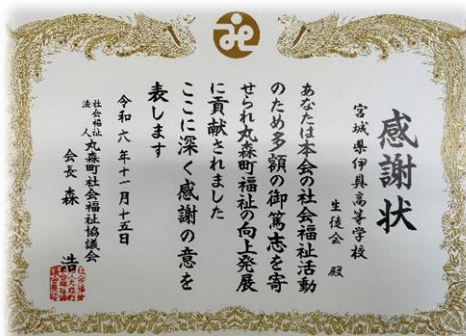 感謝状
宮城県伊具高等学校
生徒会 殿
あなたは本会の社会福祉活動
のため多額の御篤志を寄
せられ丸森町福祉の向上発展
に貢献されました
ここに深く感謝の意を
表します
令和六年十一月十五日
社会福祉法人 丸森町社会福祉協議会
会長 森 浩